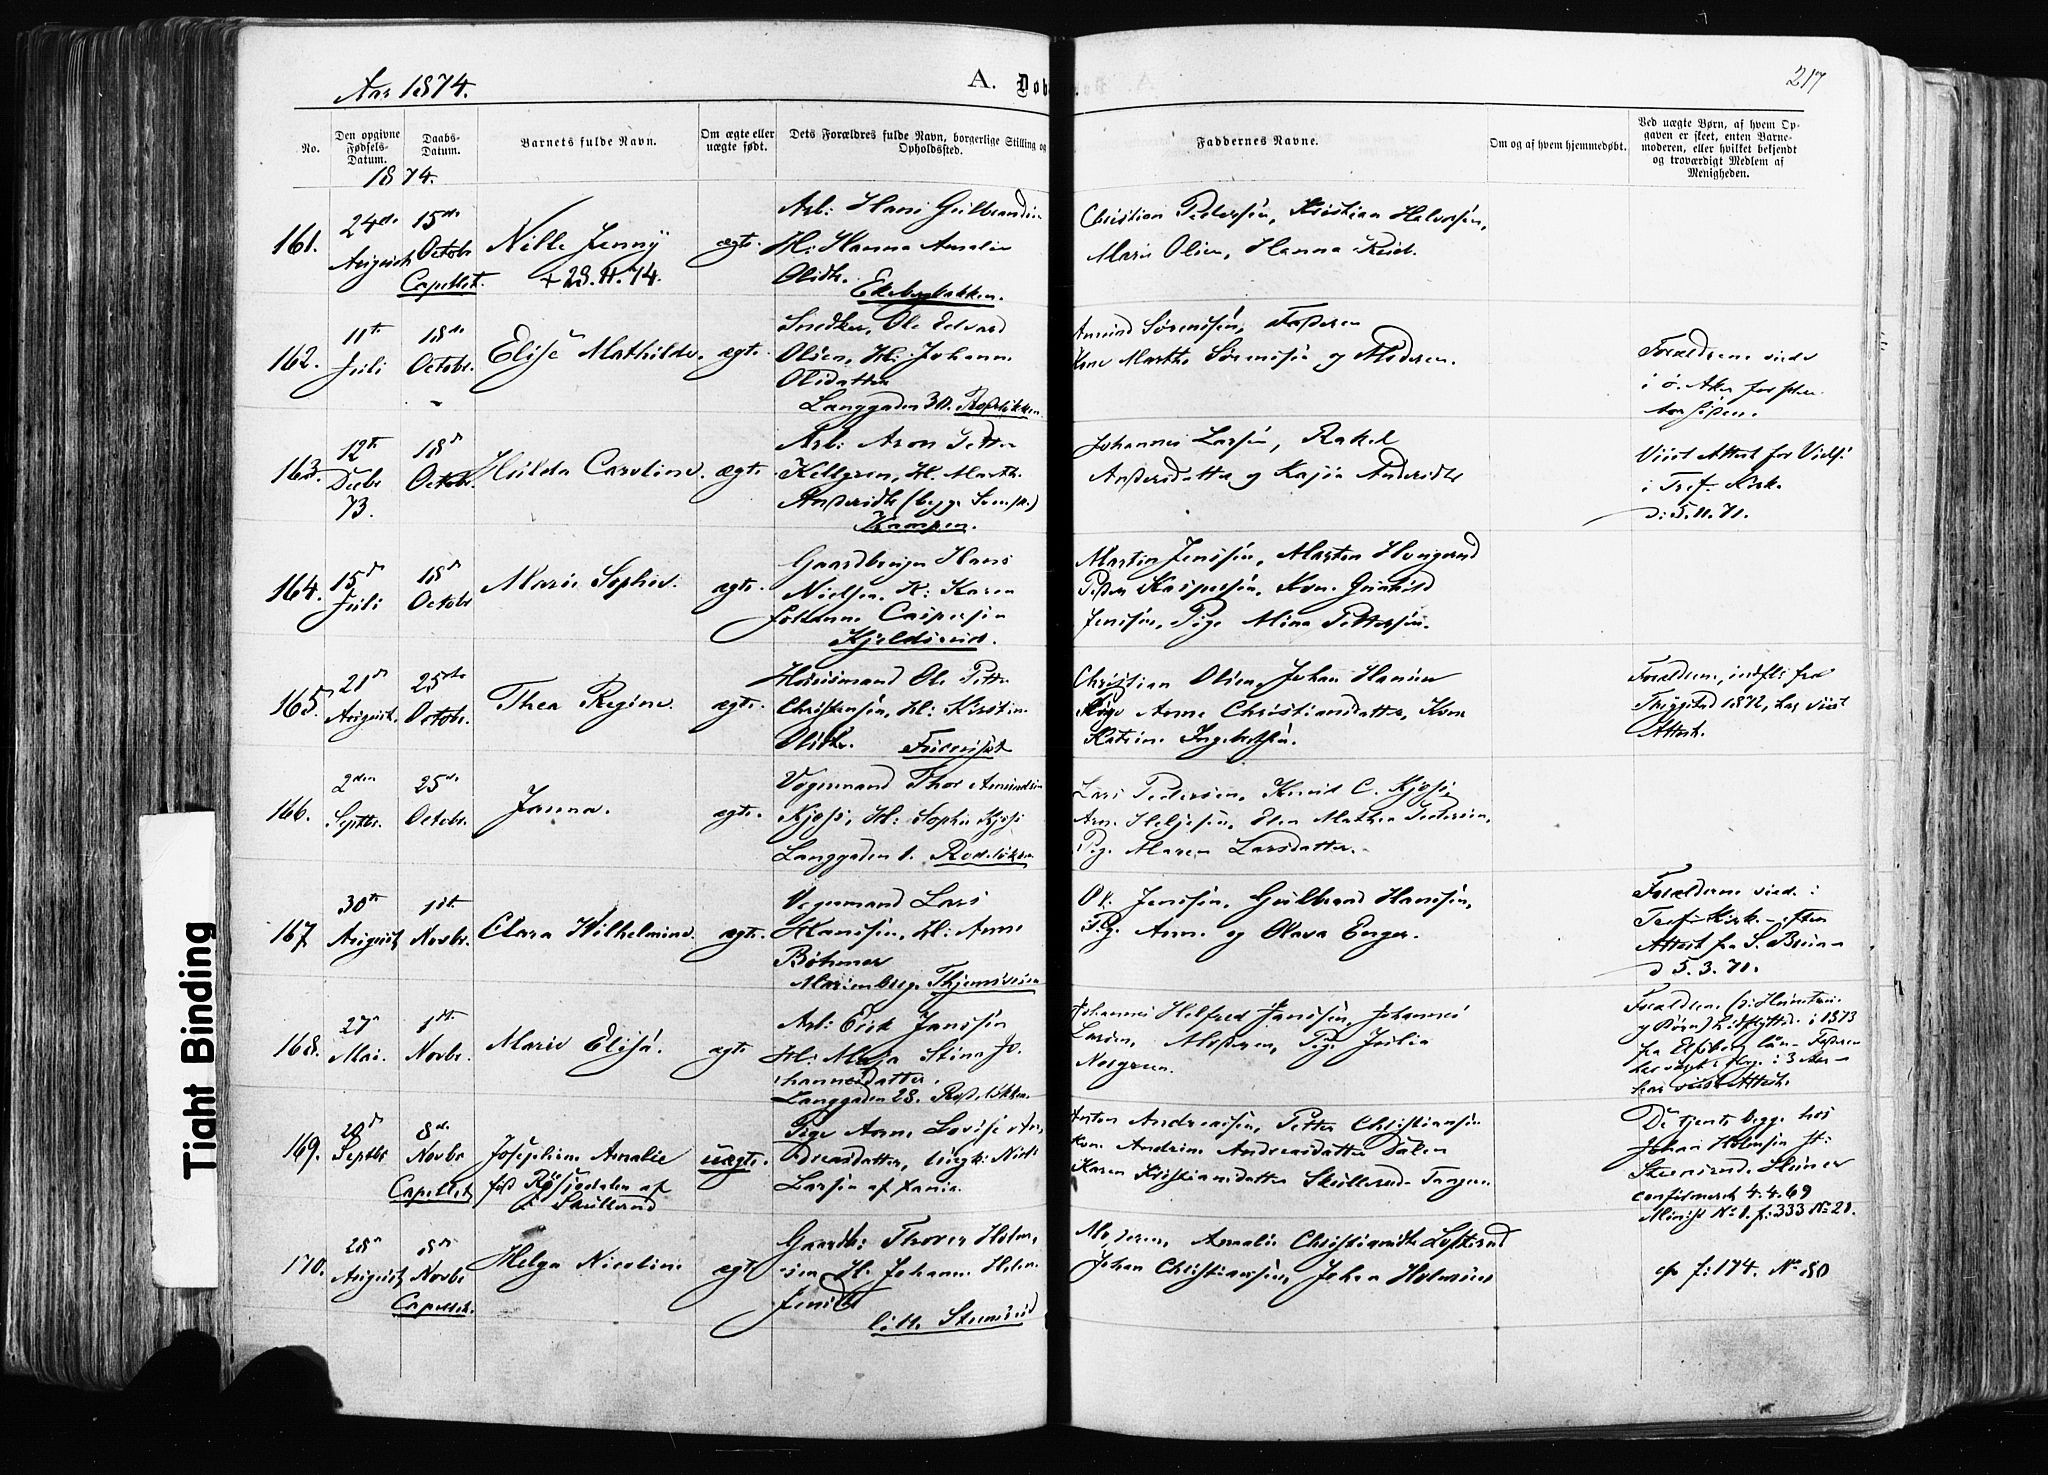 Aar 1874.
A. Døb
217
No.
Den opgivne Fødsels-Datum.
Daabs-Datum.
Barnets fulde Navn.
Om ægte eller uægte født.
Dets Forældres fulde Navn, borgerlige Stilling og Opholdssted.
Faddernes Navne.
Om og af hvem hjemmedøbt.
Ved uægte Børn, af hvem Opgaven er skeet, enten Barnemoderen, eller hvilket bekjendt og troværdigt Medlem af Menigheden.
1874.
161.
24de August
15de Octobr
Capellet.
Nille Jenny
+ 28.11.74.
ægte.
Arb: Hans Gulbrandsen
H: Hanna Amalie
Olsdtr.
Ekebergbakken.
Christian Pedersen, Kristian Halvorsen,
Marie Olsen, Hanna
162.
11te Juli
18de Octobr.
Elise Mathilde.
ægte.
Snedker, Ole Edvard
Olsen, H: Johanne
Olsdatter
Langgaden 30. Rodeløkken
Amund Sørensen, Faderen
Kone Marthe Sørensen og Moderen.
Forældrene viede
i Ø. Aker
163.
12te Decbr 73.
18d Octobr.
Hulda Caroline.
ægte.
Arb: Aron Petter
Kellgren, H. Marth.
Andersdtr (begge Svenske)
Kampen.
Johannes Larsen, Rakel
Andersdatter og Kajsa Andersdtr
Viist Attest for Vielse
i Tref. Kirke
d: 5.11.71.
164.
15d Juli
18d Octobr
Marie Sophie.
ægte.
Gaardbruger Hans
Nielsen. H: Karen
Johanne Caspersen
Kjeldsrud.
Martin Jensen, Marten
Peder Kaspersen, Kone Gunhild
Jensen, Pige Mina Pettersen.
165.
21d August.
25de Octobr.
Thea Regine.
ægte.
Husmand Ole Petter
Christensen, H: Kirstine
Olsdtr.
Christian Olsen, Johan Hansen
Pige Anne Christiansdatter, Kone
Katrine Ingebretsen.
Forældrene, indfl: fra
Trøgstad 1872, har viist
Attest.
166.
2den Septbr.
25de Octobr.
Janna.
ægte.
Vognmand Thor Amundsen
Kjøsi, H: Sophie Kjøsi
Langgaden 1. Rodeløkken
Lars Pedersen, Knud C. Kjøsi,
Arne Helgesen, Elen Mathea Pedersen,
Pige Maren Larsdatter.
167
30te August
1ste Novbr.
Clara Wilhelmine.
ægte.
Vognmand Lars
Hansen, H: Anne
Böhmer
Marienberg.
Ole Jensen, Gulbrand Hansen,
Pige Anne og Olava Enger.
Forældrene viede i
Tref. Kirke - efter
Attest fra S. Bruun
d 5.3.71.
168.
27d Mai.
1ste Novbr.
Marie Elisa.
ægte
Arb: Erik Jansen
H: Maja Stina Jo-
hannesdatter.
Langgaden 28. Rodeløkken.
Johannes Helfred Jansen, Johannes
Larsen, Moderen, Pige Julia
Norgren.
169.
20d Septbr
8de Novbr
Capellet
Josephine Amalie
uægte.
Pige Anne Lovise An-
dreasdatter, Ungk: Niels
Larsen
Anton Andreassen, Petter Christiansen
Kone Andrine Andreasdatter Dalen
Karen Kristiansdatter Skullerud Tangen
De tjente begge hos
Johan Holmsen
confirmeret 4.4.69
Minist No 1. f: 333 No 21.
170.
28d August
8de Novbr
Capellet.
Helga Nicoline.
ægte
Gaardbr: Thorer Holm-
sen H: Johanne Helene
Jensdtr
lille Stensrud
Moderen, Amalie Christiansdtr
Johan Christiansen, Johan Holmsen
cfr f: 174. No 80
Tight Binding